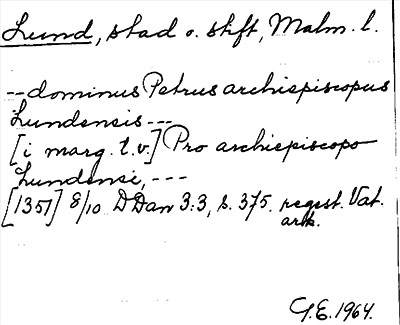 Lund, stad o. stift, Malm. l.
-- dominus Petrus archiepiscopus
Lundensis ---
[i marg. t.v.] Pro archiepiscopo
Lundensi, ---
[1351] 8/10 DDan 3:3, s. 375. regest. Vat.
ark.
G.E. 1964.